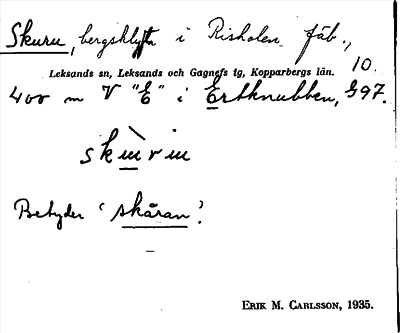 Skuru, bergsklyfta i Risholen fäb.,
10.
Leksands sn, Leksands och Gagnefs tg, Kopparbergs län.
400 m V "E" i Ertknubben, G97.
Betyder 'skåran'.
ERIK M. CARLSSON, 1935.